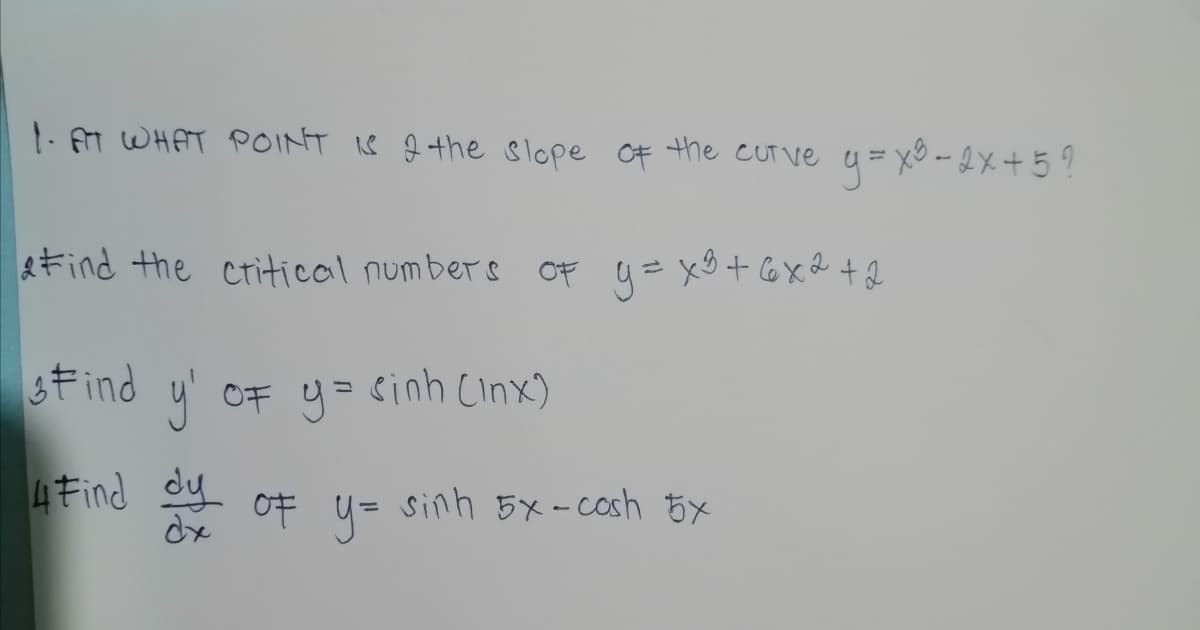 1. AT WHAT POINT is 2 the slope OF the curve y = x³ - 2x + 5?
2 Find the critical numbers OF y = x³ + 6x² + 2
3 Find y' OF y = sinh (lnx)
4 Find dy/dx OF y = sinh 5x - cosh 5x